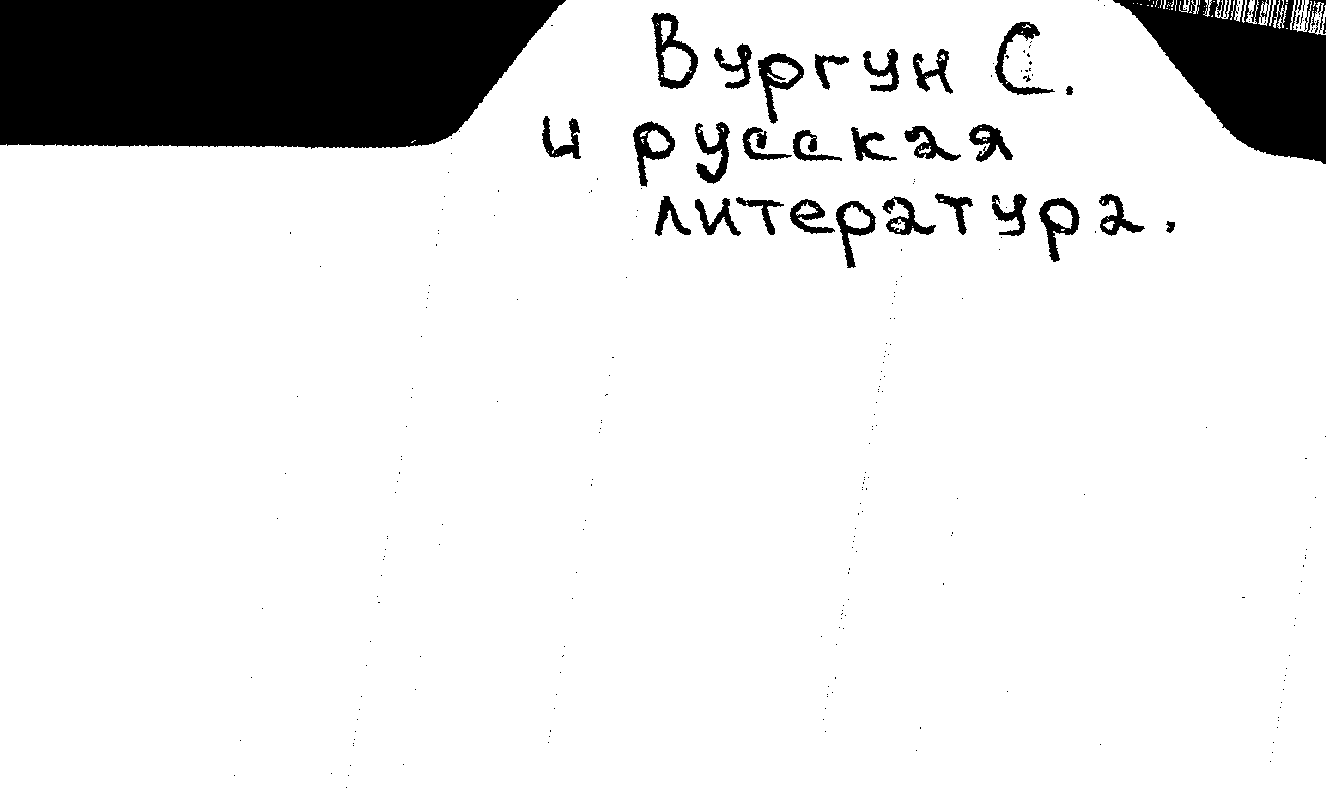 Вургун С.
и русская
литература.